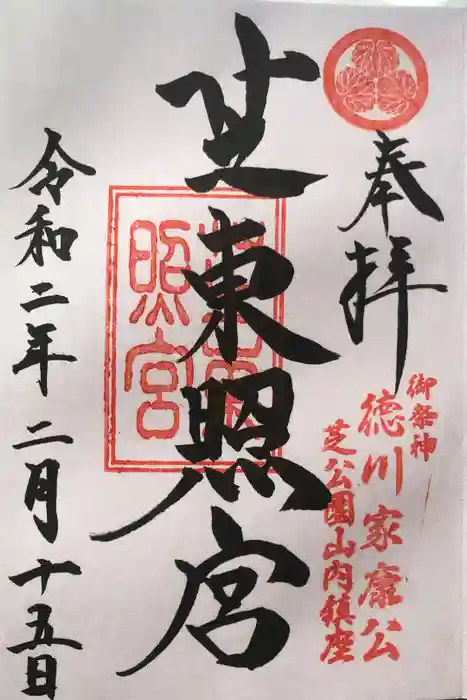 奉拝
御祭神
徳川家康公
芝公園山内鎮座
芝東照宮
芝東照宮
令和二年二月十五日